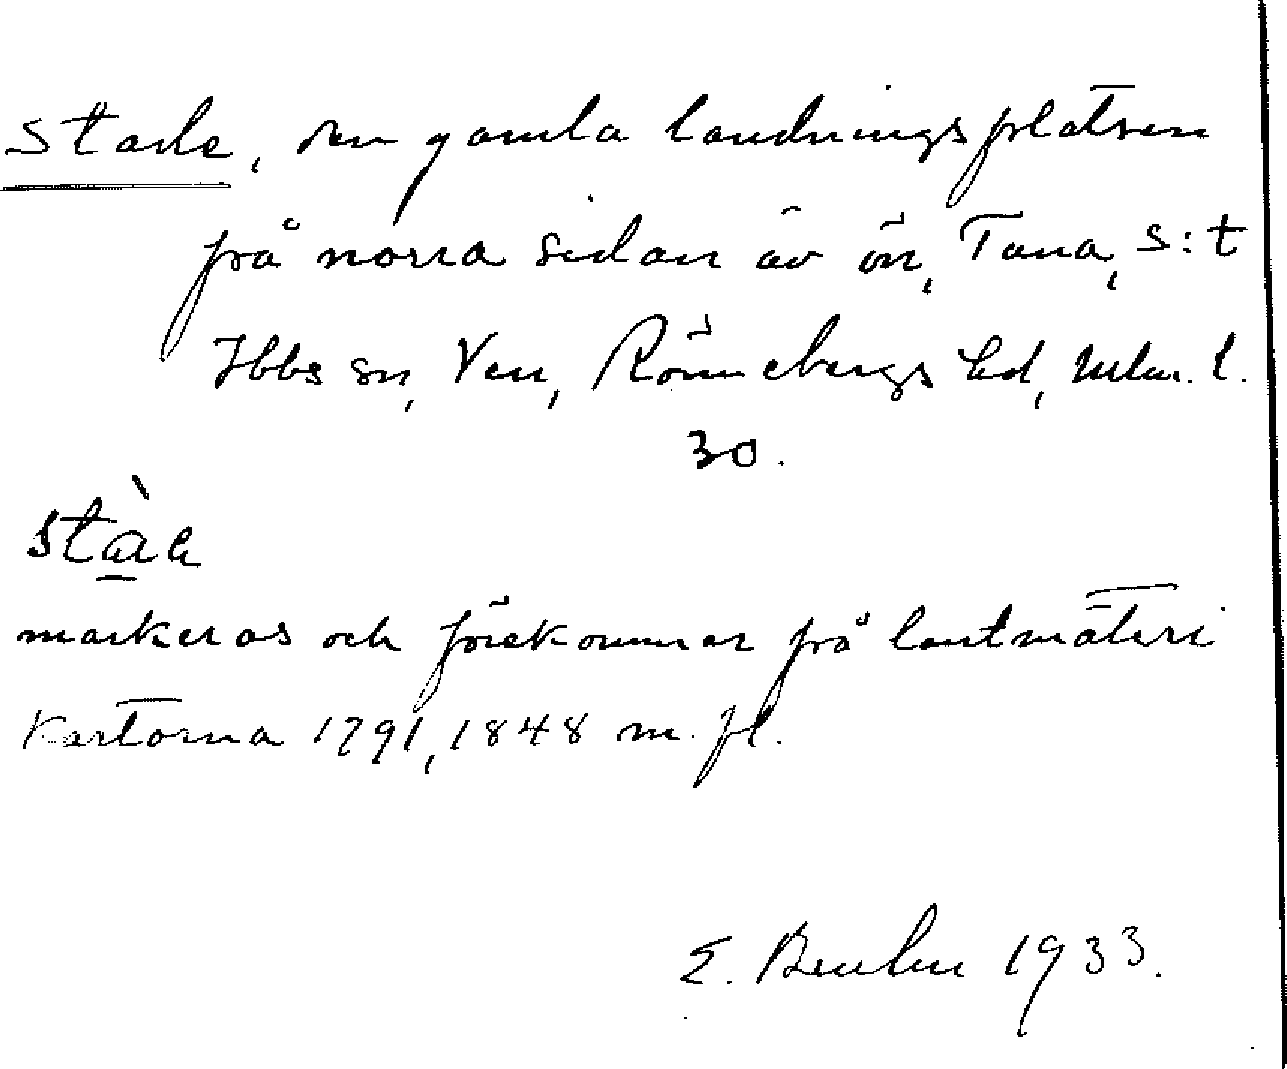 Stade, den gamla landningsplatsen
på norra sidan av ön, Tuna, S:t
Ibbs sn, Ven, Rönnebergs hd, Mlm. l.
30.
markeras och förekommer på lantmäteri
kartorna 1791, 1848 m. fl.
E. 1933.